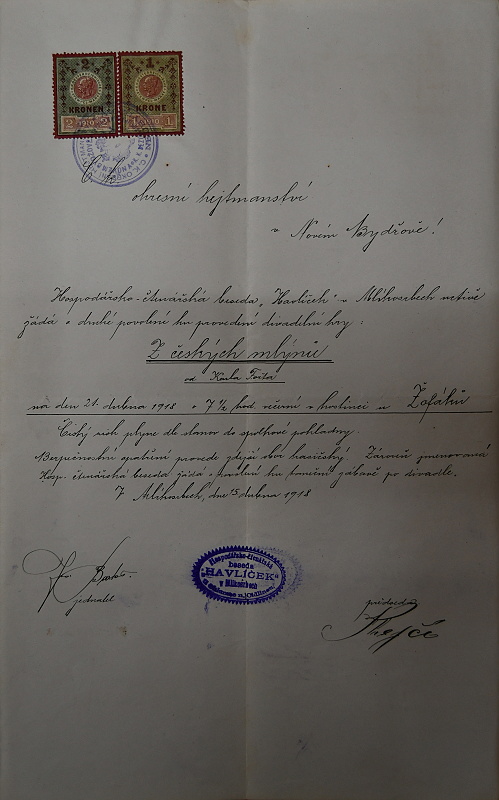 2 1
KRONEN KRONE
2 1910 2 1 1910 1
C. k.
okresní hejtmanství
v Novém Bydžově!
Hospodářsko-čtenářská beseda „Havlíček" v Mlékosrbech uctivě
žádá o druhé povolení ku provedení divadelní hry:
Z českých mlýnů
od Karla Fořta
na den 21. dubna 1918 o 7½ hod. večerní v hostinci u Žofáků
Čistý zisk plyne dle stanov do spolkové pokladny.
Bezpečnostní opatření provede zdejší sbor hasičský. Zároveň jmenovaná
Hosp. čtenářská beseda žádá o povolení ku taneční zábavě po divadle.
V Mlékosrbech, dne 15 dubna 1918
jednatel
Hospodářsko-čtenářská
beseda
"HAVLÍČEK"
v Mlékosrbech
předseda